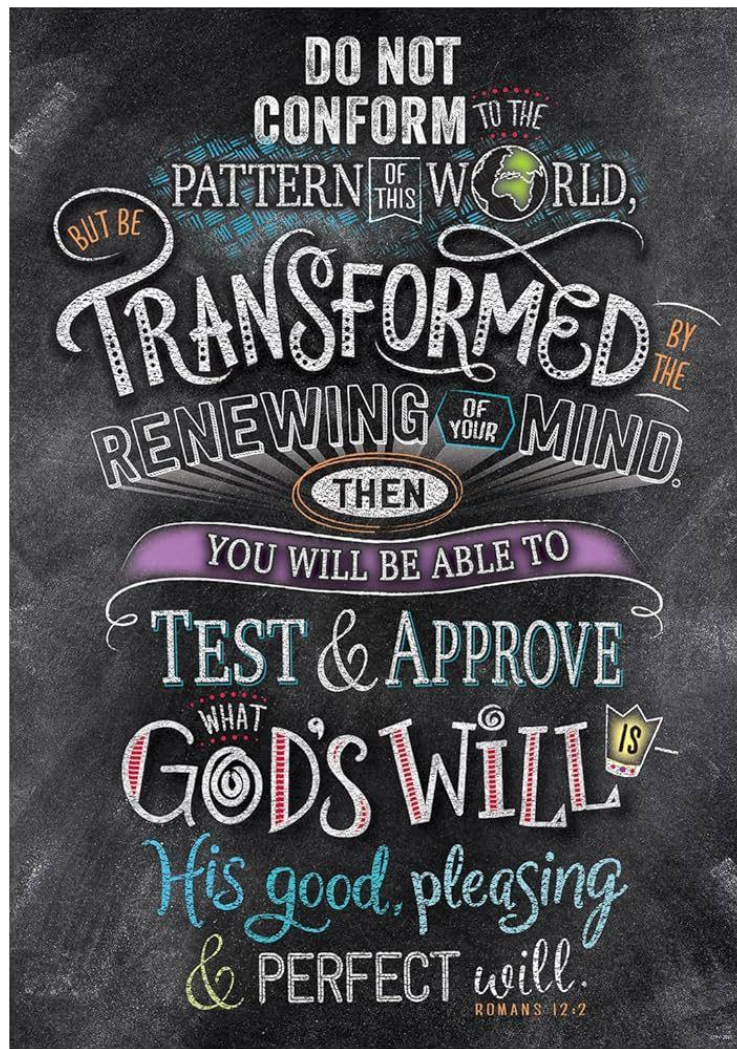 DO NOT
CONFORM TO THE
PATTERN OF THIS WORLD,
BUT BE
TRANSFORMED BY THE
RENEWING OF YOUR MIND.
THEN
YOU WILL BE ABLE TO
TEST & APPROVE
WHAT
GOD'S WILL IS
His good, pleasing
& PERFECT will.
ROMANS 12:2